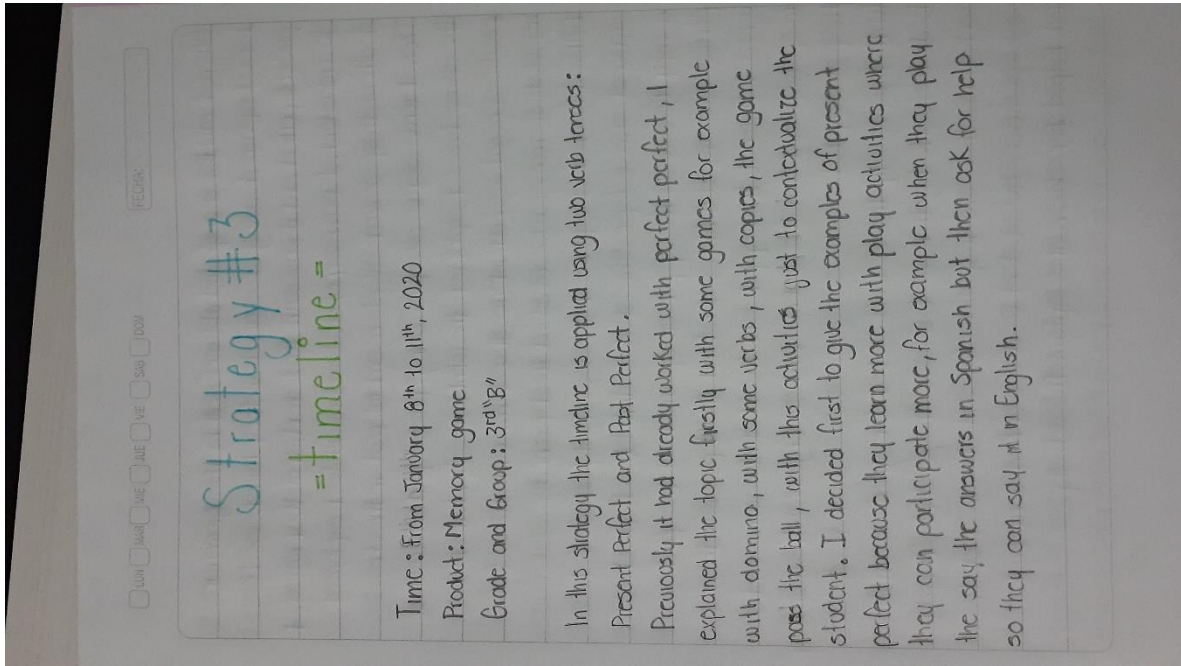 LUN MAR MIE JUE VIE SAB DOM
FECHA:
Strategy #3
=timeline=
Time: From January 8th to 11th, 2020
Product: Memory game
Grade and Group: 3rd "B"
In this strategy the timeline is applied using two verb tenses:
Present Perfect and Past Perfect.
Previously it had already worked with perfect perfect, I
explained the topic firstly with some games for example
with domino, with some verbs, with copies, the game
pass the ball, with this activities just to contextualize the
student. I decided first to give the examples of present
perfect because they learn more with play activities where
they can participate more, for example when they play
the say the answers in Spanish but then ask for help
so they can say it in English.